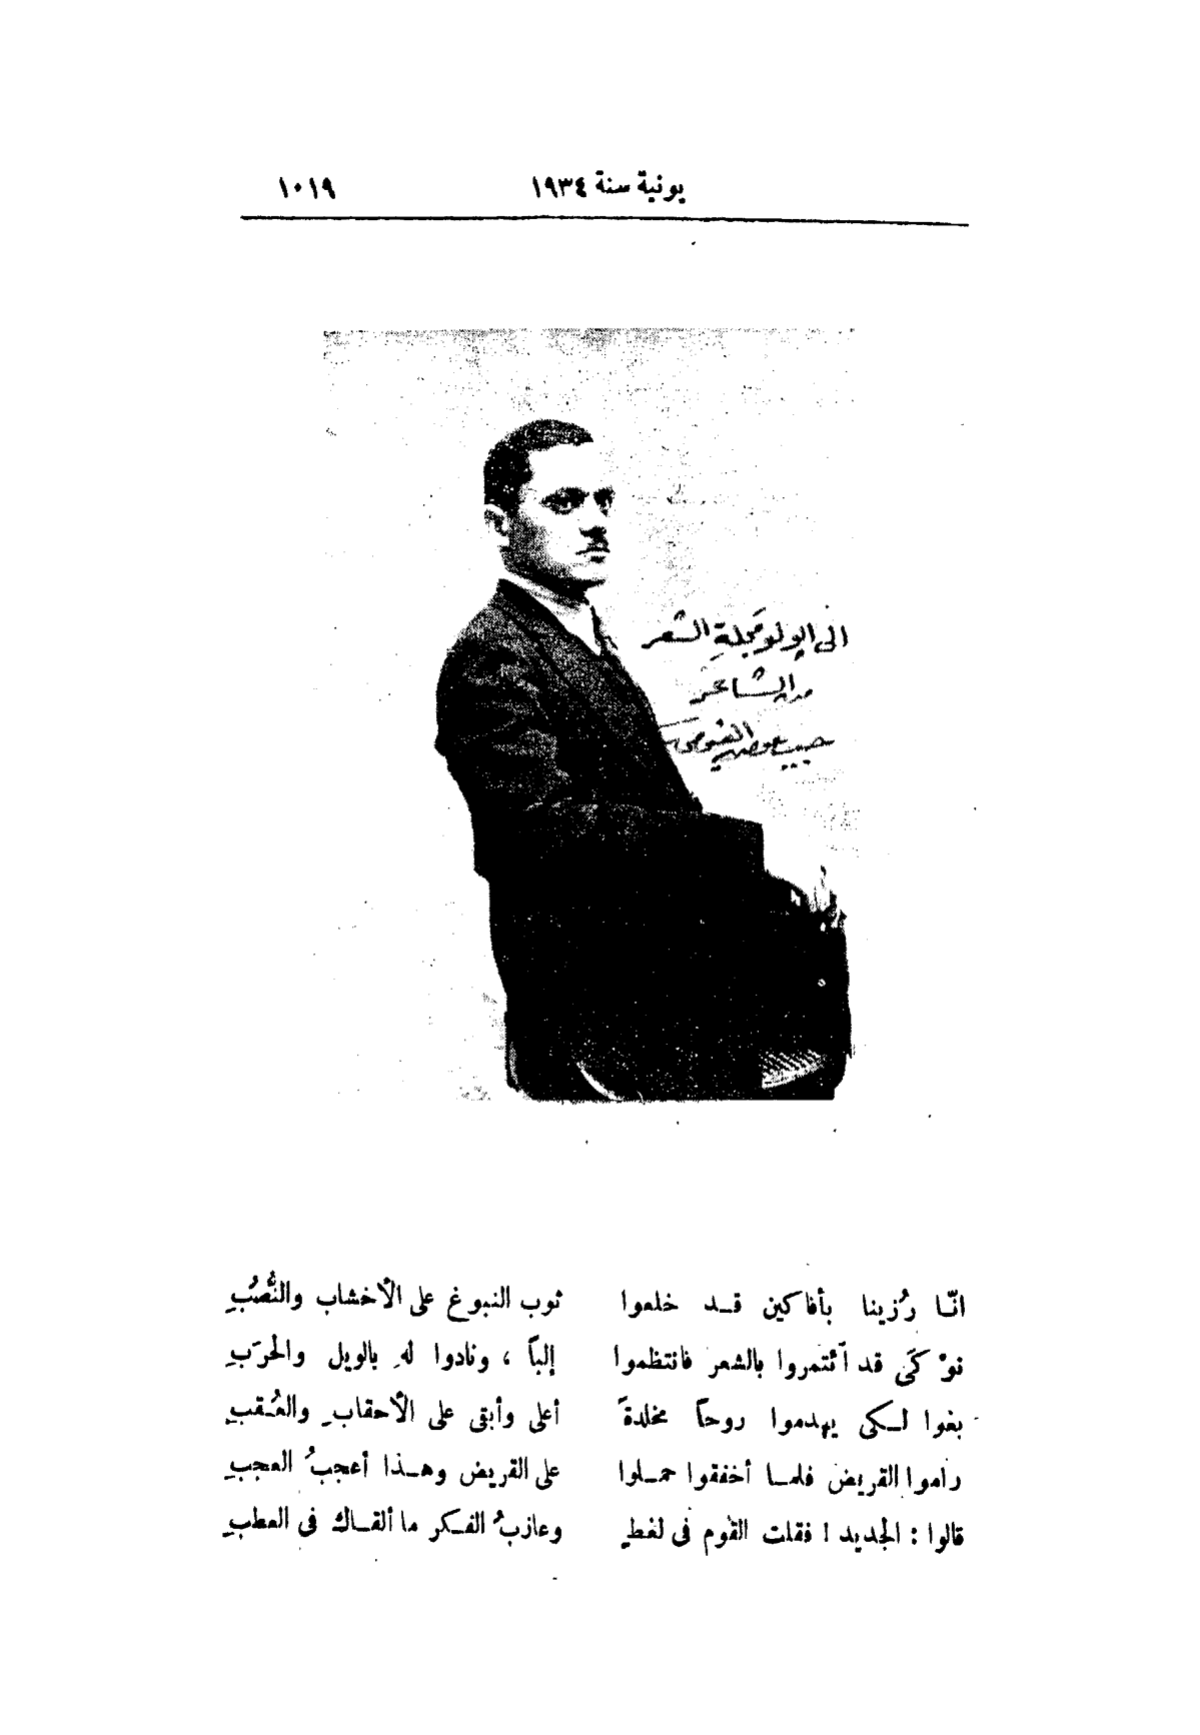 يونية سنة ١٩٣٤ ١٠١٩
الى اپولو مجلة الشعر
من الشاعر
حبيب عوض الفيومى
انّا رُزينا بأفاكين قد خلعوا ثوب النبوغ على الأخشاب والنُّصُبِ
نوْكَى قد آئتمروا بالشعر فانتظموا إلباً ، ونادوا لهِ بالويل والحرَبِ
بغوا لكى يهدموا روحاً مخلدةً أعلى وأبقى على الأحقابِ والعُقبِ
راموا القريض فلما أخفقوا حملوا على القريض وهذا أعجبُ العجبِ
قالوا : الجديد ! فقلت القوم فى لغطٍ وعازبُ الفكر ما ألقاك فى العطبِ